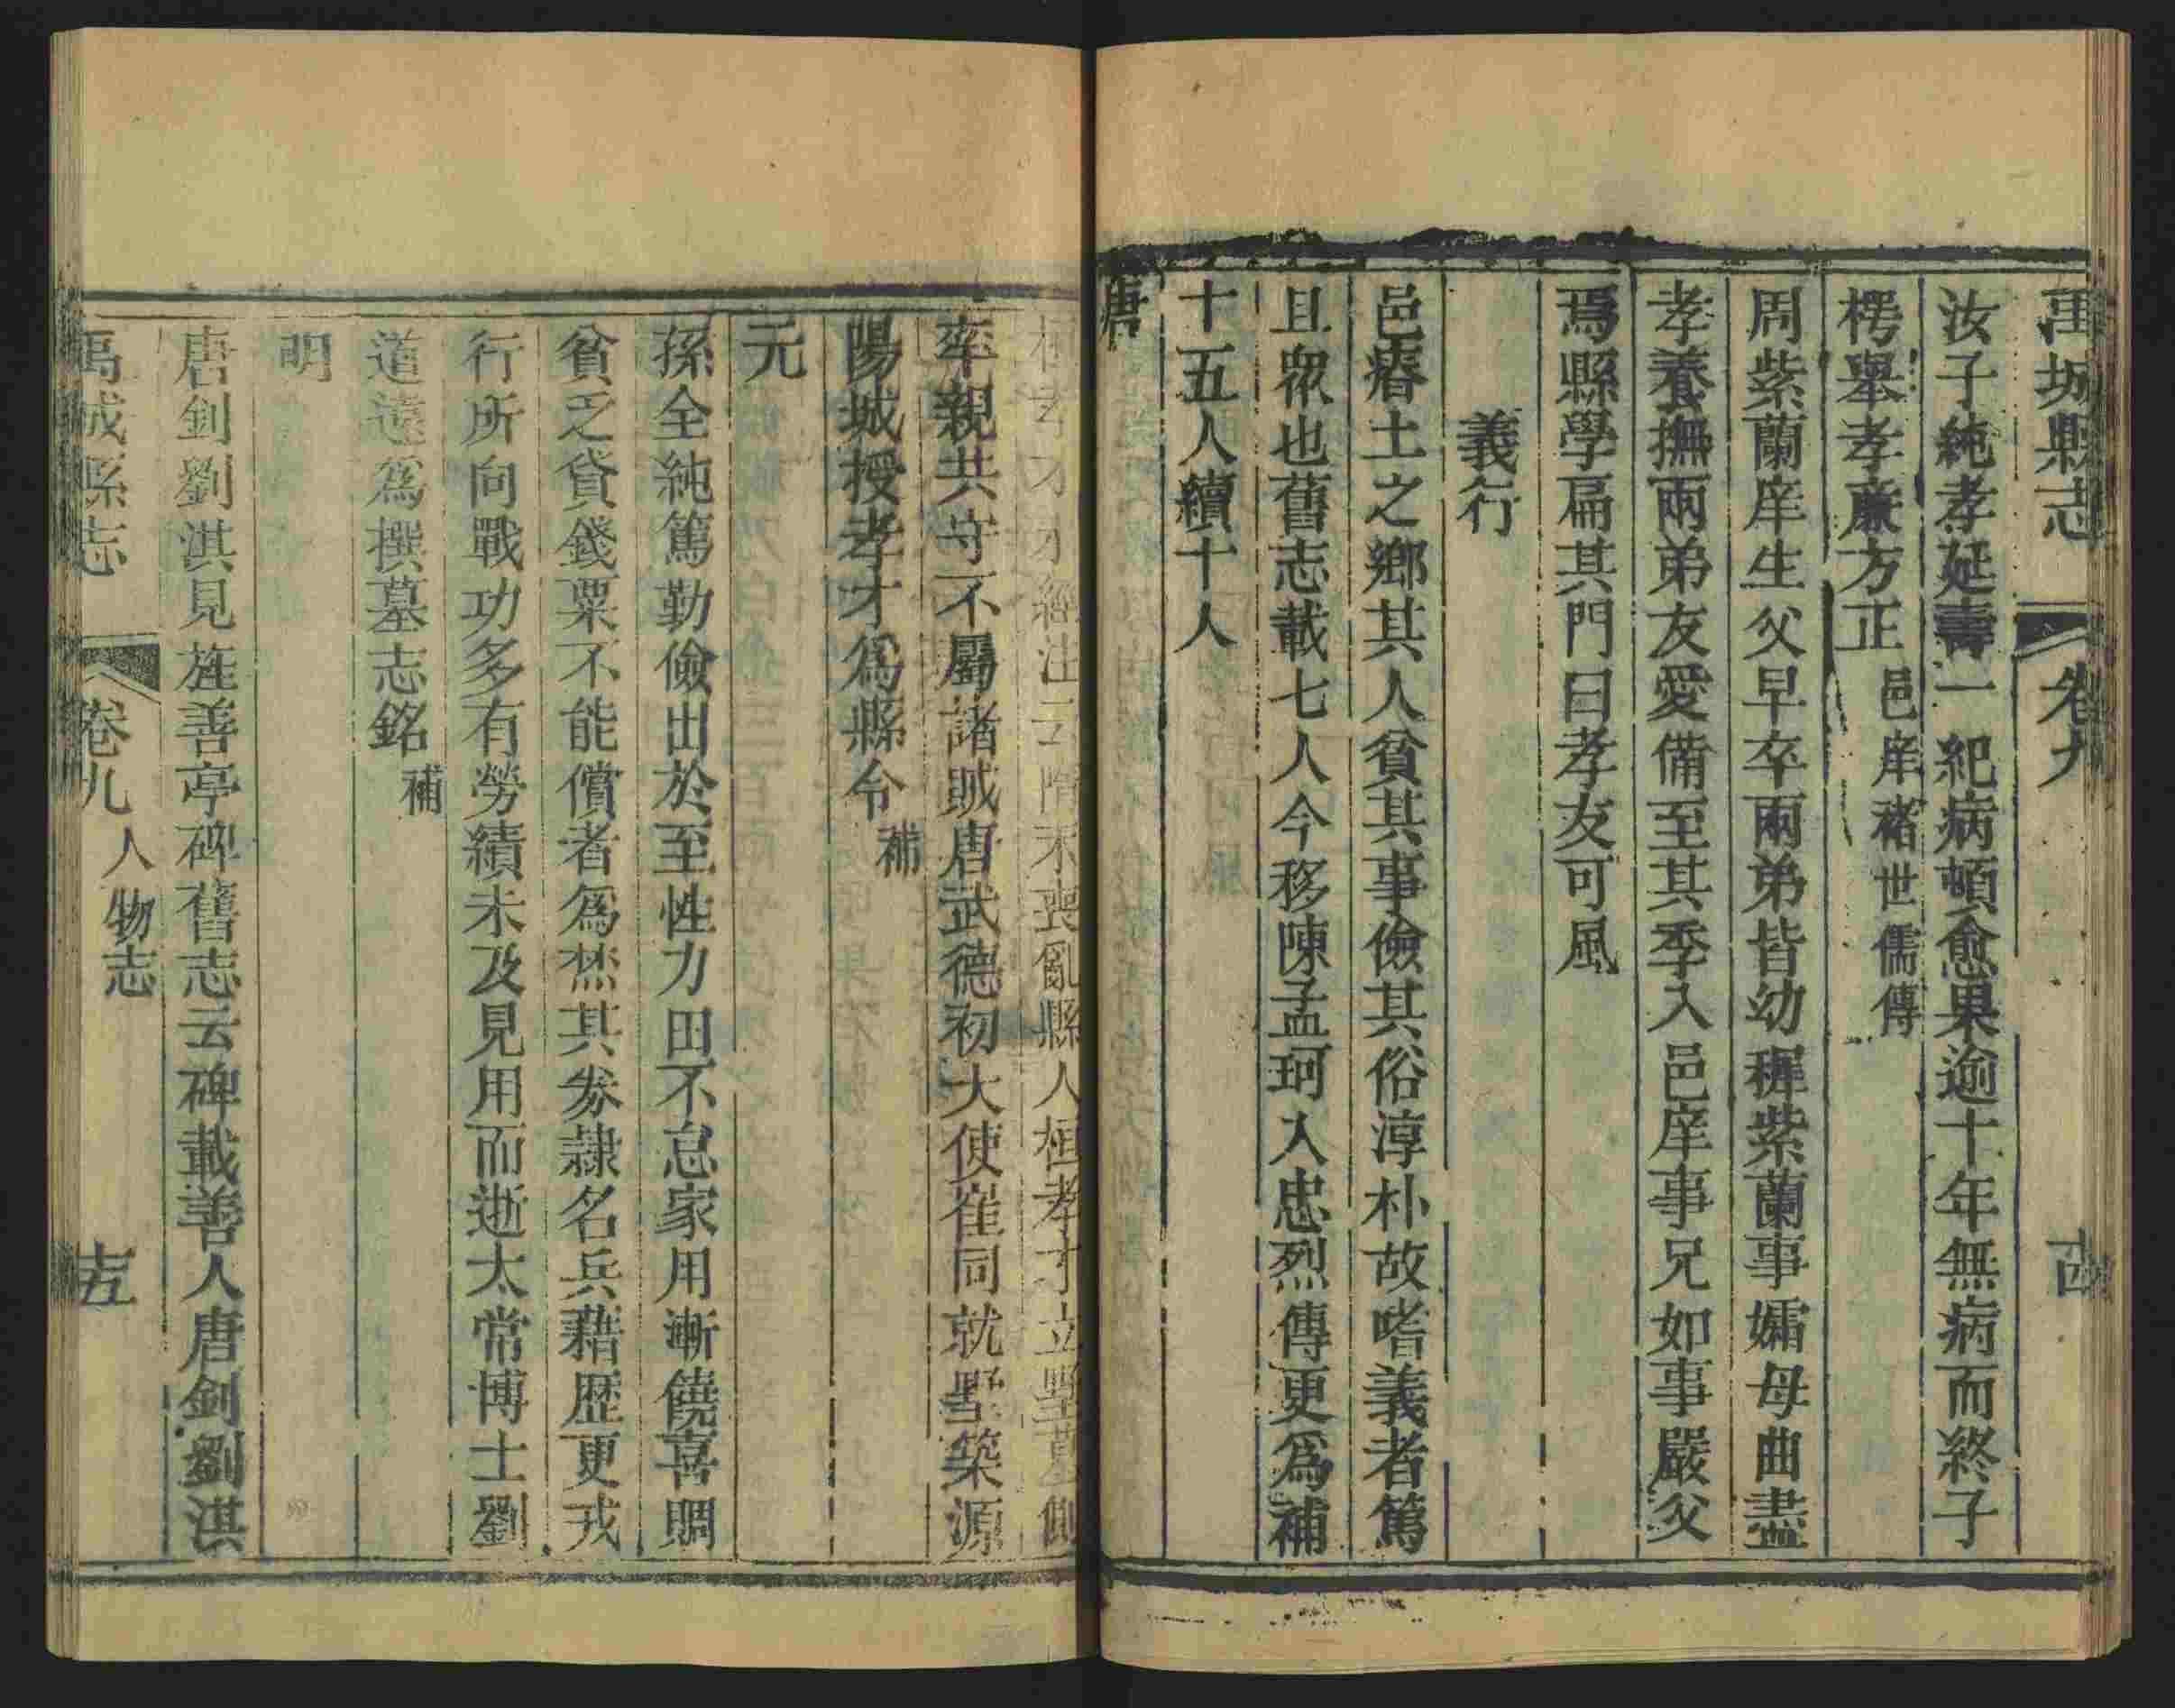 禹城縣志 卷九 十四
汝子純孝延壽一紀病頓愈果逾十年無病而終子
楞舉孝廉方正邑庠褚世儒傳
周紫蘭庠生父早卒兩弟皆幼穉紫蘭事孀母曲盡
孝養撫兩弟友愛備至其季入邑庠事兄如事嚴父
焉縣學扁其門曰孝友可風
義行
邑瘠土之鄉其人貧其事儉其俗淳朴故嗜義者篤
且衆也舊志載七人今移陳孟珂入忠烈傳更爲補
十五人續十人
唐
桓孝才水經注云隋末喪亂縣人桓孝才立墅墓側
率親共守不屬諸賊唐武德初大使崔同就墅築源
陽城授孝才爲縣令補
元
孫全純篤勤儉出於至性力田不怠家用漸饒喜賙
貧乏貸錢粟不能償者爲焚其券隷名兵藉歷更戎
行所向戰功多有勞績未及見用而逝太常博士劉
道遠爲撰墓志銘補
明
唐釗劉淇見旌善亭碑舊志云碑載善人唐釗劉淇
禹城縣志 卷九 人物志 十五